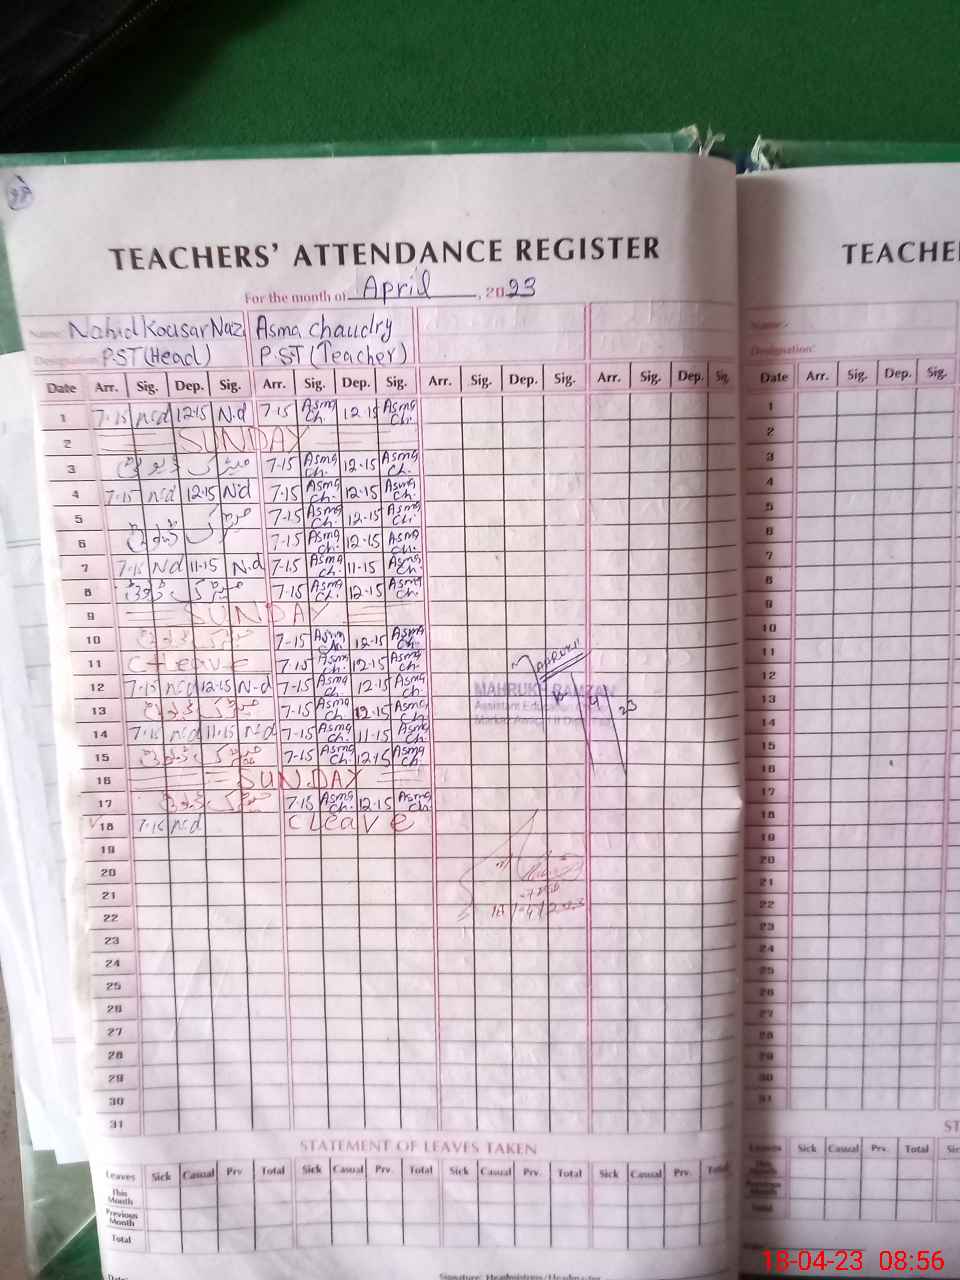 TEACHERS' ATTENDANCE REGISTER
For the month of April, 2023
Name: Nahid Kousar Naz Asma Chaudry
Designation: P.S.T (Head) P.S.T (Teacher)
Date Arr. Sig. Dep. Sig. Arr. Sig. Dep. Sig. Arr. Sig. Dep. Sig. Arr. Sig. Dep. Sig.
1 7-15 n.d 12-15 N.d 7-15 Asma Ch. 12-15 Asma Ch.
2 SUNDAY
3 7-15 Asma Ch. 12-15 Asma Ch.
4 7-15 n.d 12-15 N.d 7-15 Asma Ch. 12-15 Asma Ch.
5 7-15 Asma Ch. 12-15 Asma Ch.
6 7-15 Asma Ch. 12-15 Asma Ch.
7 7-15 N.d 11-15 N.d 7-15 Asma Ch. 11-15 Asma Ch.
8 7-15 Asma Ch. 12-15 Asma Ch.
9 SUNDAY
10 7-15 Asma Ch. 12-15 Asma Ch.
11 C Leave 7-15 Asma Ch. 12-15 Asma Ch.
12 7-15 n.d 12-15 N-d 7-15 Asma Ch. 12-15 Asma Ch.
13 7-15 Asma Ch. 12-15 Asma Ch.
14 7-15 n.d 11-15 N.d 7-15 Asma Ch. 11-15 Asma Ch.
15 7-15 Asma Ch. 12-15 Asma Ch.
16 SUNDAY
17 7-15 Asma Ch. 12-15 Asma Ch.
18 7-15 N.d C Leave
19
20
21
22
23
24
25
26
27
28
29
30
31
MAHRUKH RAMZAN
Assistant Educ
STATEMENT OF LEAVES TAKEN
Leaves Sick Casual Prv. Total Sick Casual Prv. Total Sick Casual Prv. Total Sick Casual Prv. Total
This Month
Previous Month
Total
Date:
Signature: Headmistress/Headmaster
TEACHE
Name:
Designation:
Date Arr. Sig. Dep. Sig.
1
2
3
4
5
6
7
8
9
10
11
12
13
14
15
16
17
18
19
20
21
22
23
24
25
26
27
28
29
30
31
ST
Leaves Sick Casual Prv. Total
This Month
Previous Month
Total
18-04-23 08:56